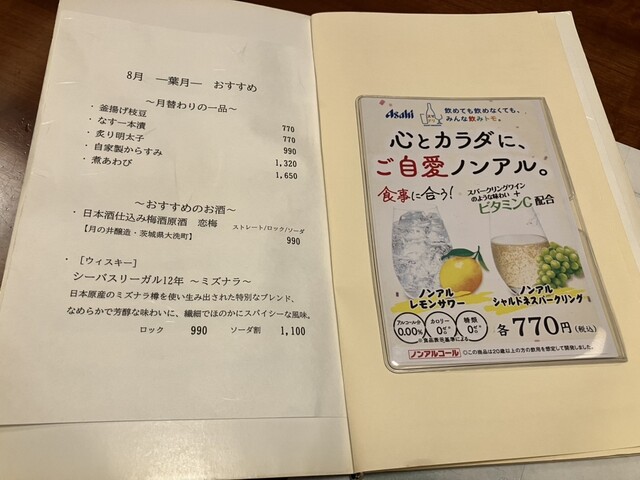 8月 ―葉月― おすすめ
～月替わりの一品～
・釜揚げ枝豆 770
・なす一本漬 770
・炙り明太子 990
・自家製からすみ 1,320
・煮あわび 1,650
～おすすめのお酒～
・日本酒仕込み梅酒原酒 恋梅 ストレート/ロック/ソーダ
【月の井醸造・茨城県大洗町】 990
・［ウィスキー］
シーバスリーガル12年 ～ミズナラ～
日本原産のミズナラ樽を使い生み出された特別なブレンド、
なめらかで芳醇な味わいに、繊細でほのかにスパイシーな風味。
ロック 990 ソーダ割 1,100
Asahi
飲めても飲めなくても、
みんな飲みトモ。
心とカラダに、
ご自愛ノンアル。
食事に合う!
スパークリングワイン
のような味わい
+
ビタミンC配合
ノンアル
レモンサワー
ノンアル
シャルドネスパークリング
アルコール分
0.00%
カロリー
0
糖類
0
※食品表示基準による
各770円(税込)
ノンアルコール
○この商品は20歳以上の方の飲用を想定して開発しました。